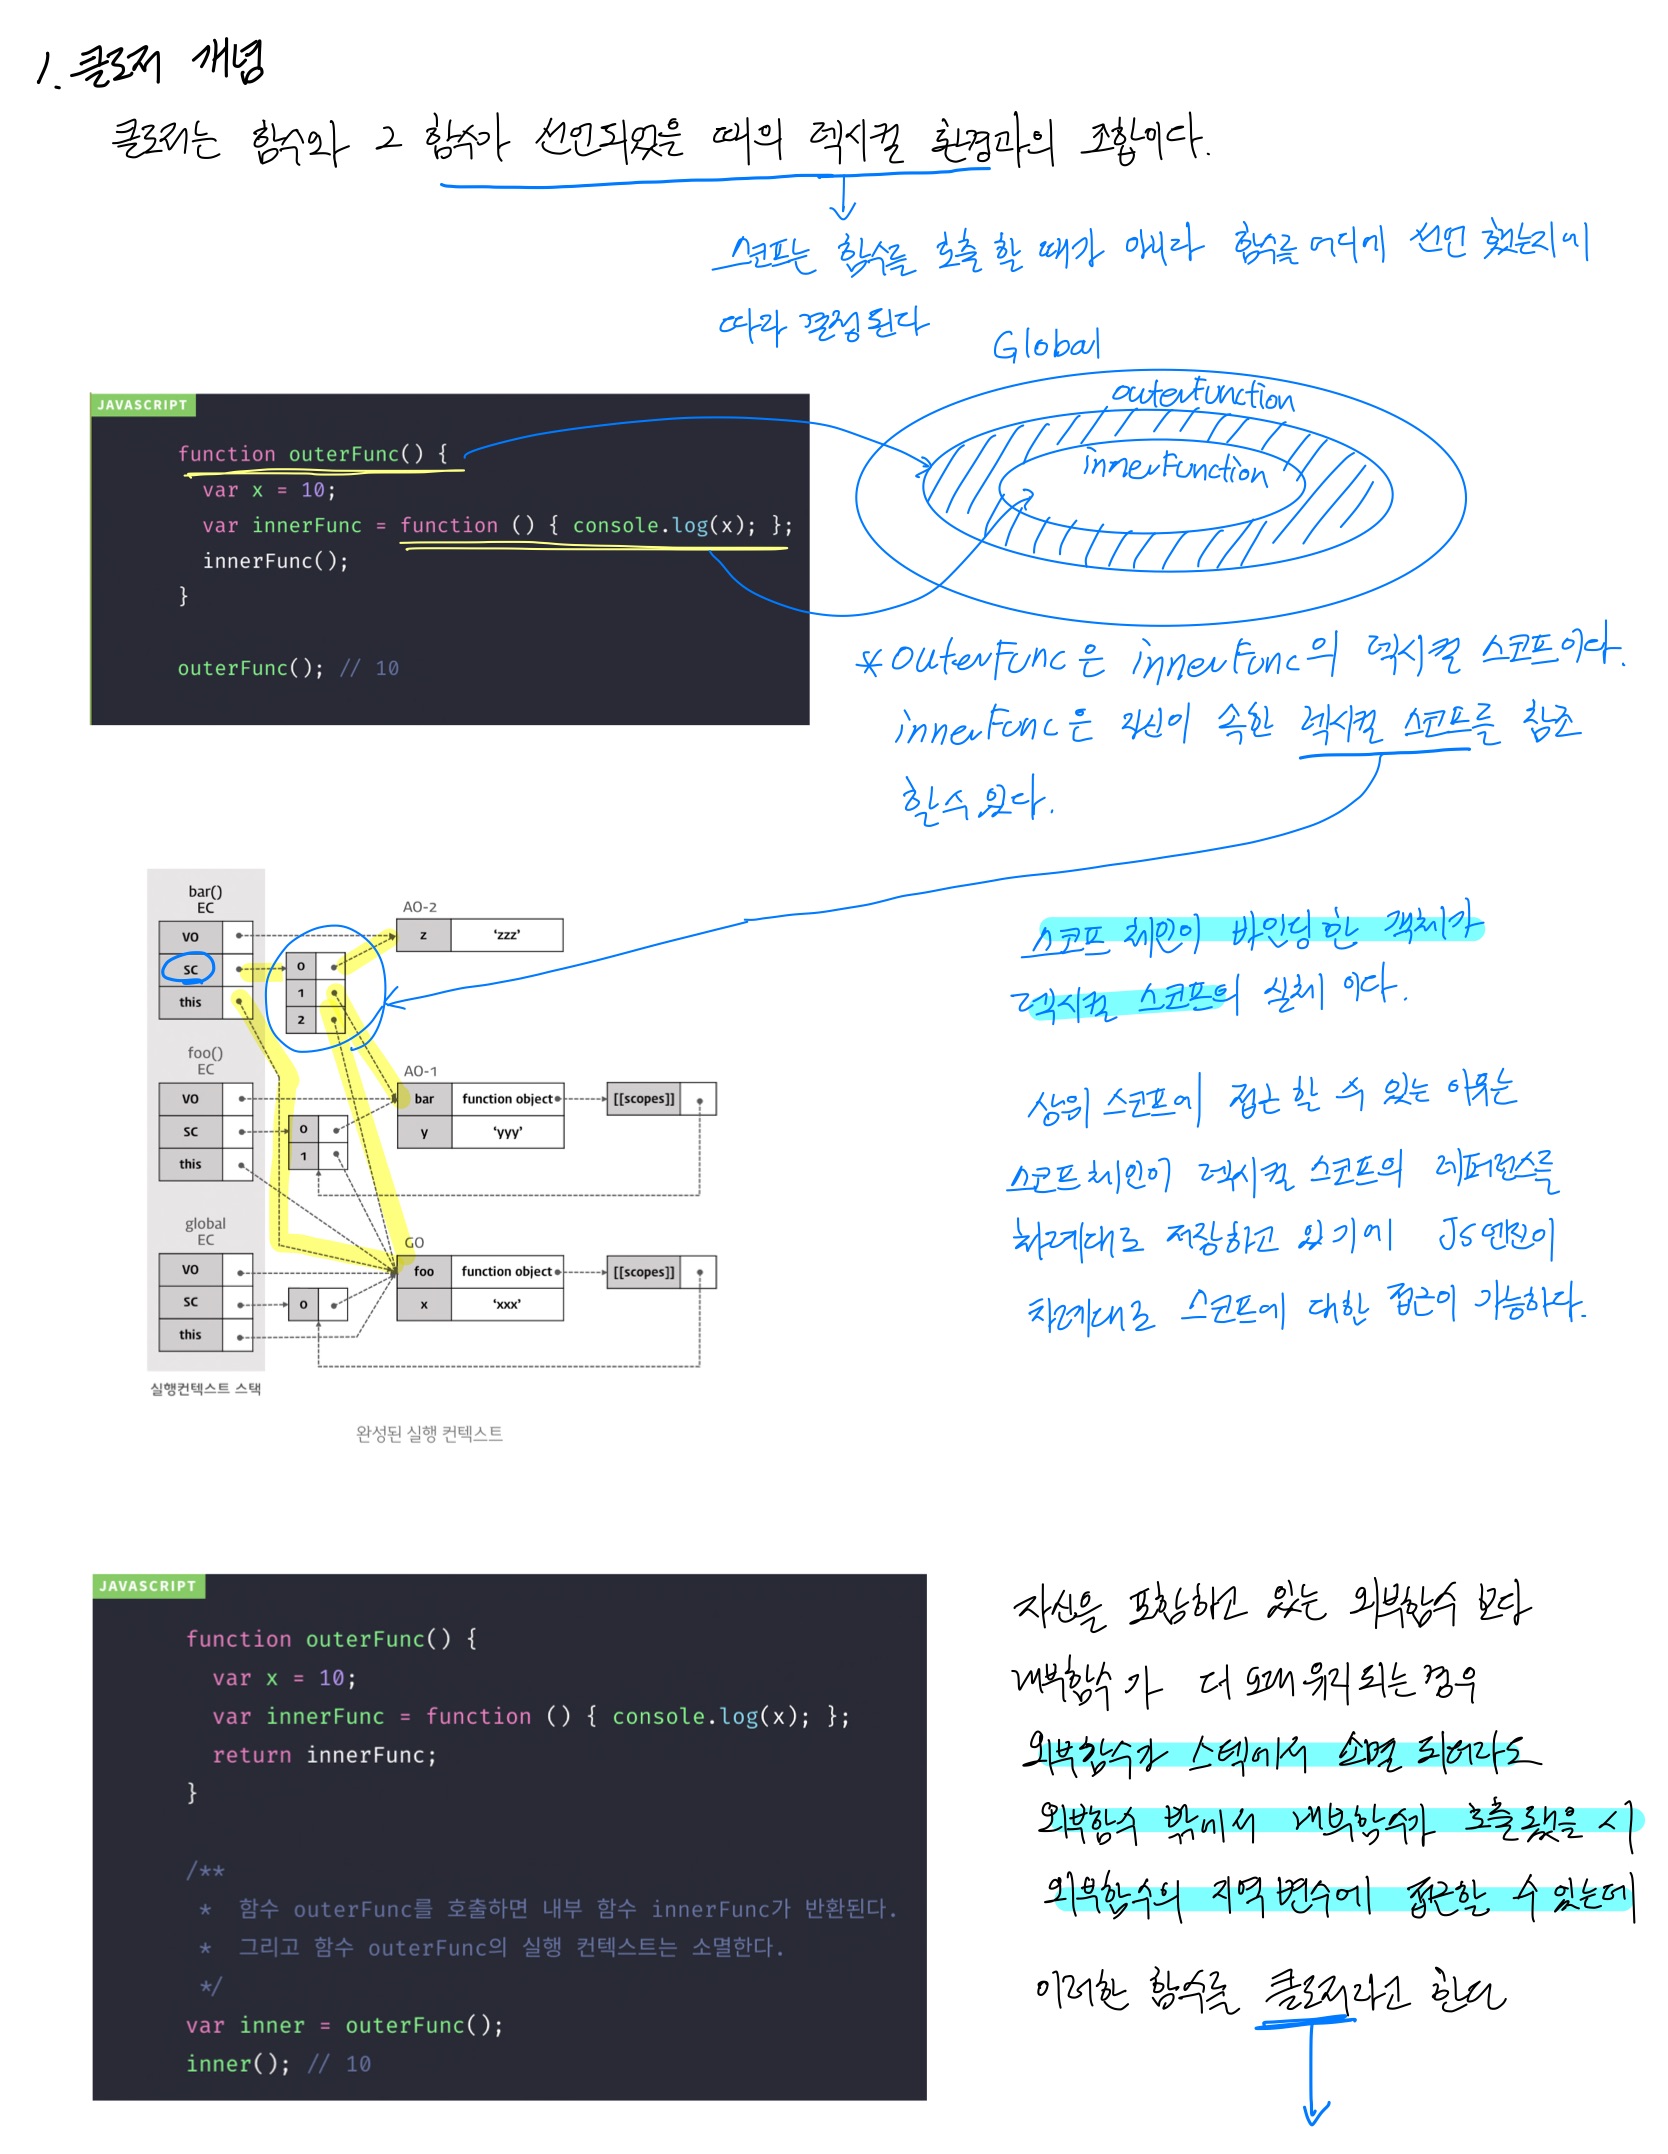 1. 클로저 개념
클로저는 함수와 그 함수가 선언되었을 때의 렉시컬 환경과의 조합이다.
스코프는 함수를 호출 할 때가 아니라 함수를 어디에 선언 했는지에
따라 결정된다
Global
outerFunction
innerFunction
JAVASCRIPT
function outerFunc() {
var x = 10;
var innerFunc = function () { console.log(x); };
innerFunc();
}
outerFunc(); // 10
* outerFunc은 innerFunc의 렉시컬 스코프이다.
innerFunc은 자신이 속한 렉시컬 스코프를 참조
할 수 있다.
bar()
EC
VO
SC
this
0
1
2
AO-2
z 'zzz'
foo()
EC
VO
SC
this
0
1
AO-1
bar function object [[scopes]]
y 'yyy'
global
EC
VO
SC
this
0
GO
foo function object [[scopes]]
x 'xxx'
실행컨텍스트 스택
완성된 실행 컨텍스트
스코프 체인이 바인딩 한 객체가
렉시컬 스코프의 실체 이다.
상위 스코프에 접근 할 수 있는 이유는
스코프체인이 렉시컬 스코프의 레퍼런스를
차례대로 저장하고 있기에 JS엔진이
차례대로 스코프에 대한 접근이 가능하다.
JAVASCRIPT
function outerFunc() {
var x = 10;
var innerFunc = function () { console.log(x); };
return innerFunc;
}
/**
* 함수 outerFunc를 호출하면 내부 함수 innerFunc가 반환된다.
* 그리고 함수 outerFunc의 실행 컨텍스트는 소멸한다.
*/
var inner = outerFunc();
inner(); // 10
자신을 포함하고 있는 외부함수 보다
내부함수가 더 오래 유지되는 경우
외부함수가 스텍에서 소멸 되어라도
외부함수 밖에서 내부함수가 호출됐을 시
외부함수의 지역변수에 접근할 수 있는데
이러한 함수를 클로저라고 한다